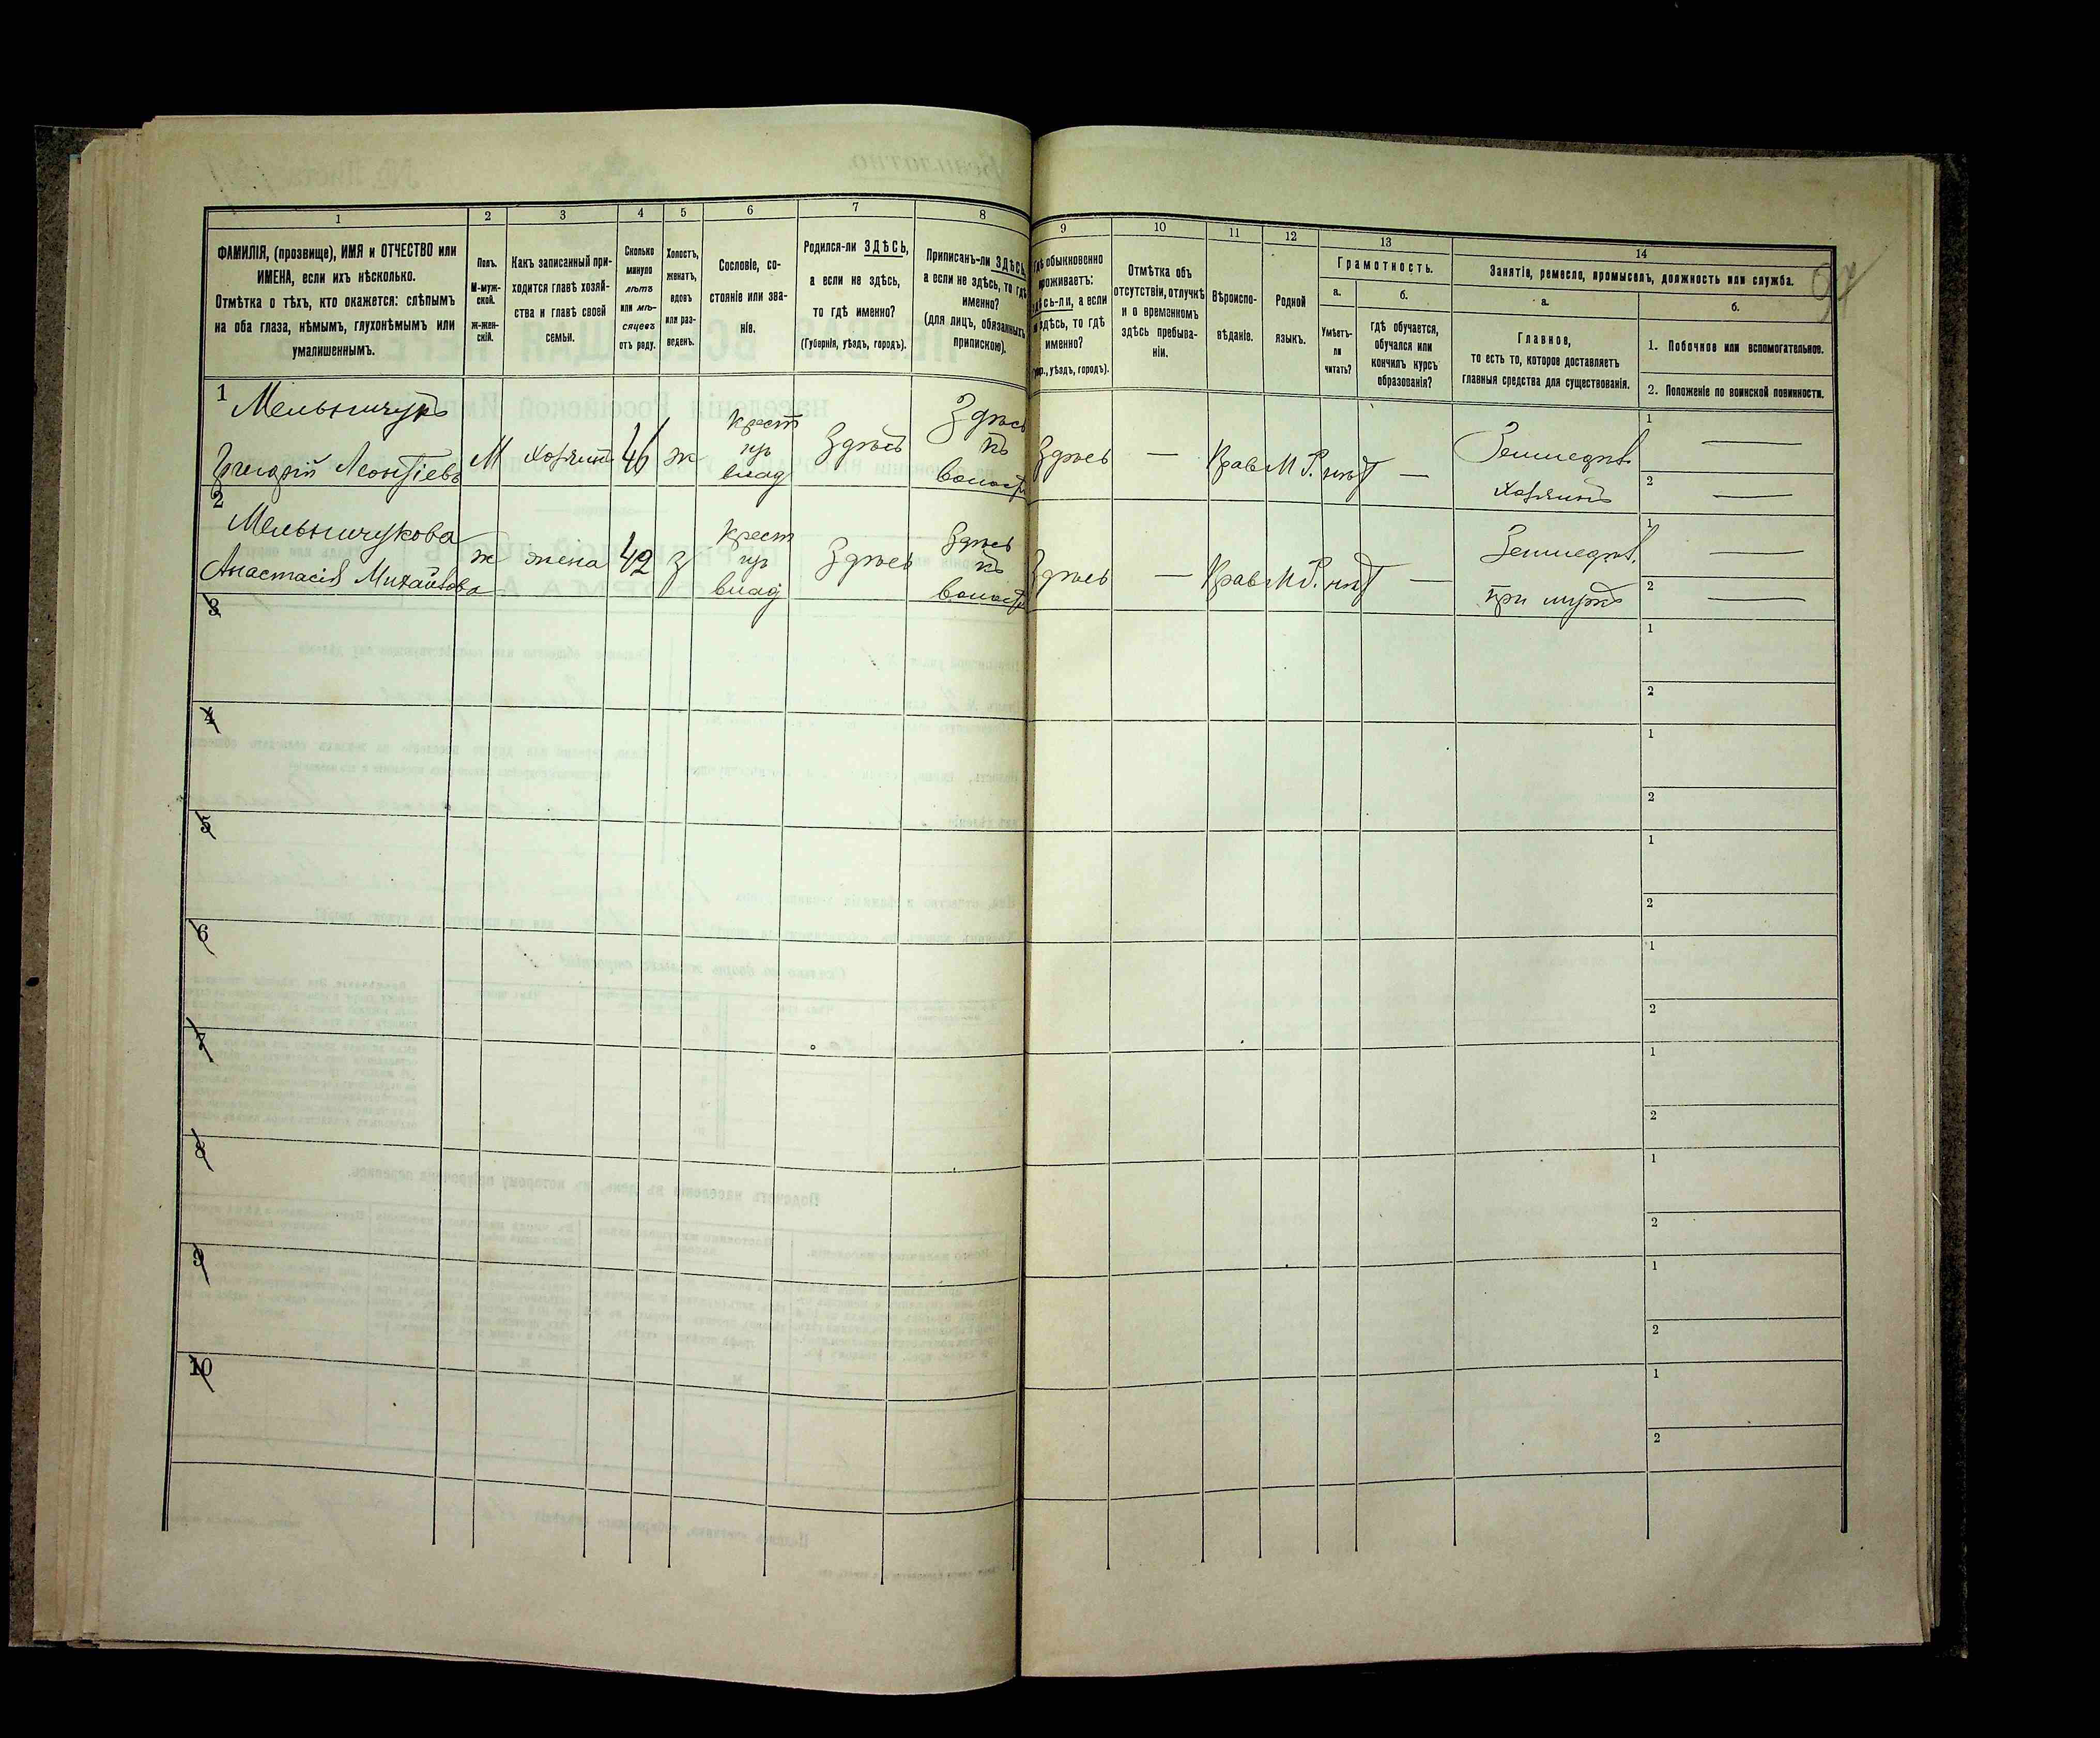 1
2
3
4
5
6
7
8
9
10
11
12
13
14
ФАМИЛІЯ, (прозвище), ИМЯ и ОТЧЕСТВО или
ИМЕНА, если ихъ нѣсколько.
Отмѣтка о тѣхъ, кто окажется: слѣпымъ
на оба глаза, нѣмымъ, глухонѣмымъ или
умалишеннымъ.
Полъ.
М-муж-
ской.
ж-жен-
скій.
Какъ записанный при-
ходится главѣ хозяй-
ства и главѣ своей
семьи.
Сколько
минуло
лѣтъ
или мѣ-
сяцевъ
отъ роду.
Холостъ,
женатъ,
вдовъ
или раз-
веденъ.
Сословіе, со-
стояніе или зва-
ніе.
Родился-ли ЗДѢСЬ,
а если не здѣсь,
то гдѣ именно?
(Губернія, уѣздъ, городъ).
Приписанъ-ли ЗДѢСЬ,
а если не здѣсь, то гдѣ
именно?
(для лицъ, обязанныхъ
припискою).
Гдѣ обыкновенно
проживаетъ:
здѣсь-ли, а если
не здѣсь, то гдѣ
именно?
(Губер., уѣздъ, городъ).
Отмѣтка объ
отсутствіи, отлучкѣ
и о временномъ
здѣсь пребыва-
ніи.
Вѣроиспо-
вѣданіе.
Родной
языкъ.
Грамотность.
а.
Умѣетъ-
ли
читать?
б.
гдѣ обучается,
обучался или
кончилъ курсъ
образованія?
Занятіе, ремесло, промыселъ, должность или служба.
а.
Главное,
то есть то, которое доставляетъ
главныя средства для существованія.
б.
1. Побочное или вспомогательное.
2. Положеніе по воинской повинности.
1
Мельничукъ
Григорій Леонтіевъ
М
хозяинъ
46
ж
Крест
изъ
влад
Здѣсь
Здѣсь
въ
волости
Здѣсь
—
Прав
М Р.
нѣт
—
Земледѣл.
хозяинъ
1 —
2 —
2
Мельничукова
Анастасія Михайлова
ж
жена
42
з
Крест
изъ
влад
Здѣсь
Здѣсь
въ
волости
Здѣсь
—
Прав
М Р.
нѣт
—
Земледѣл.
при мужѣ
1 —
2 —
3
1
2
4
1
2
5
1
2
6
1
2
7
1
2
8
1
2
9
1
2
10
1
2